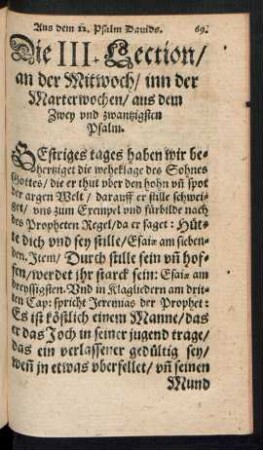 Aus dem 22. Psalm Dauids. 69.
Die III. Lection/
an der Mitwoch/ inn der
Marterwochen/ aus dem
Zwey vnd zwantzigsten
Psalm.
GEstriges tages haben wir be-
hertziget die wehklage des Sohnes
Gottes/ die er thut vber den hohn vñ spot
der argen Welt/ darauff er stille schwei-
get/ vns zum Exempel vnd fürbilde nach
des Propheten Regel/ da er saget: Hüt-
te dich vnd sey stille/ Esaiæ am sieben-
den. Item/ Durch stille sein vñ hof-
fen/ werdet ihr starck sein: Esaiæ am
dreyssigsten. Vnd in Klagliedern am drit-
ten Cap: spricht Jeremias der Prophet:
Es ist köstlich einem Manne/ das
er das Joch in seiner jugend trage/
das ein verlassener gedültig sey/
weñ jn etwas vberfellet/ vñ seinen
Mund